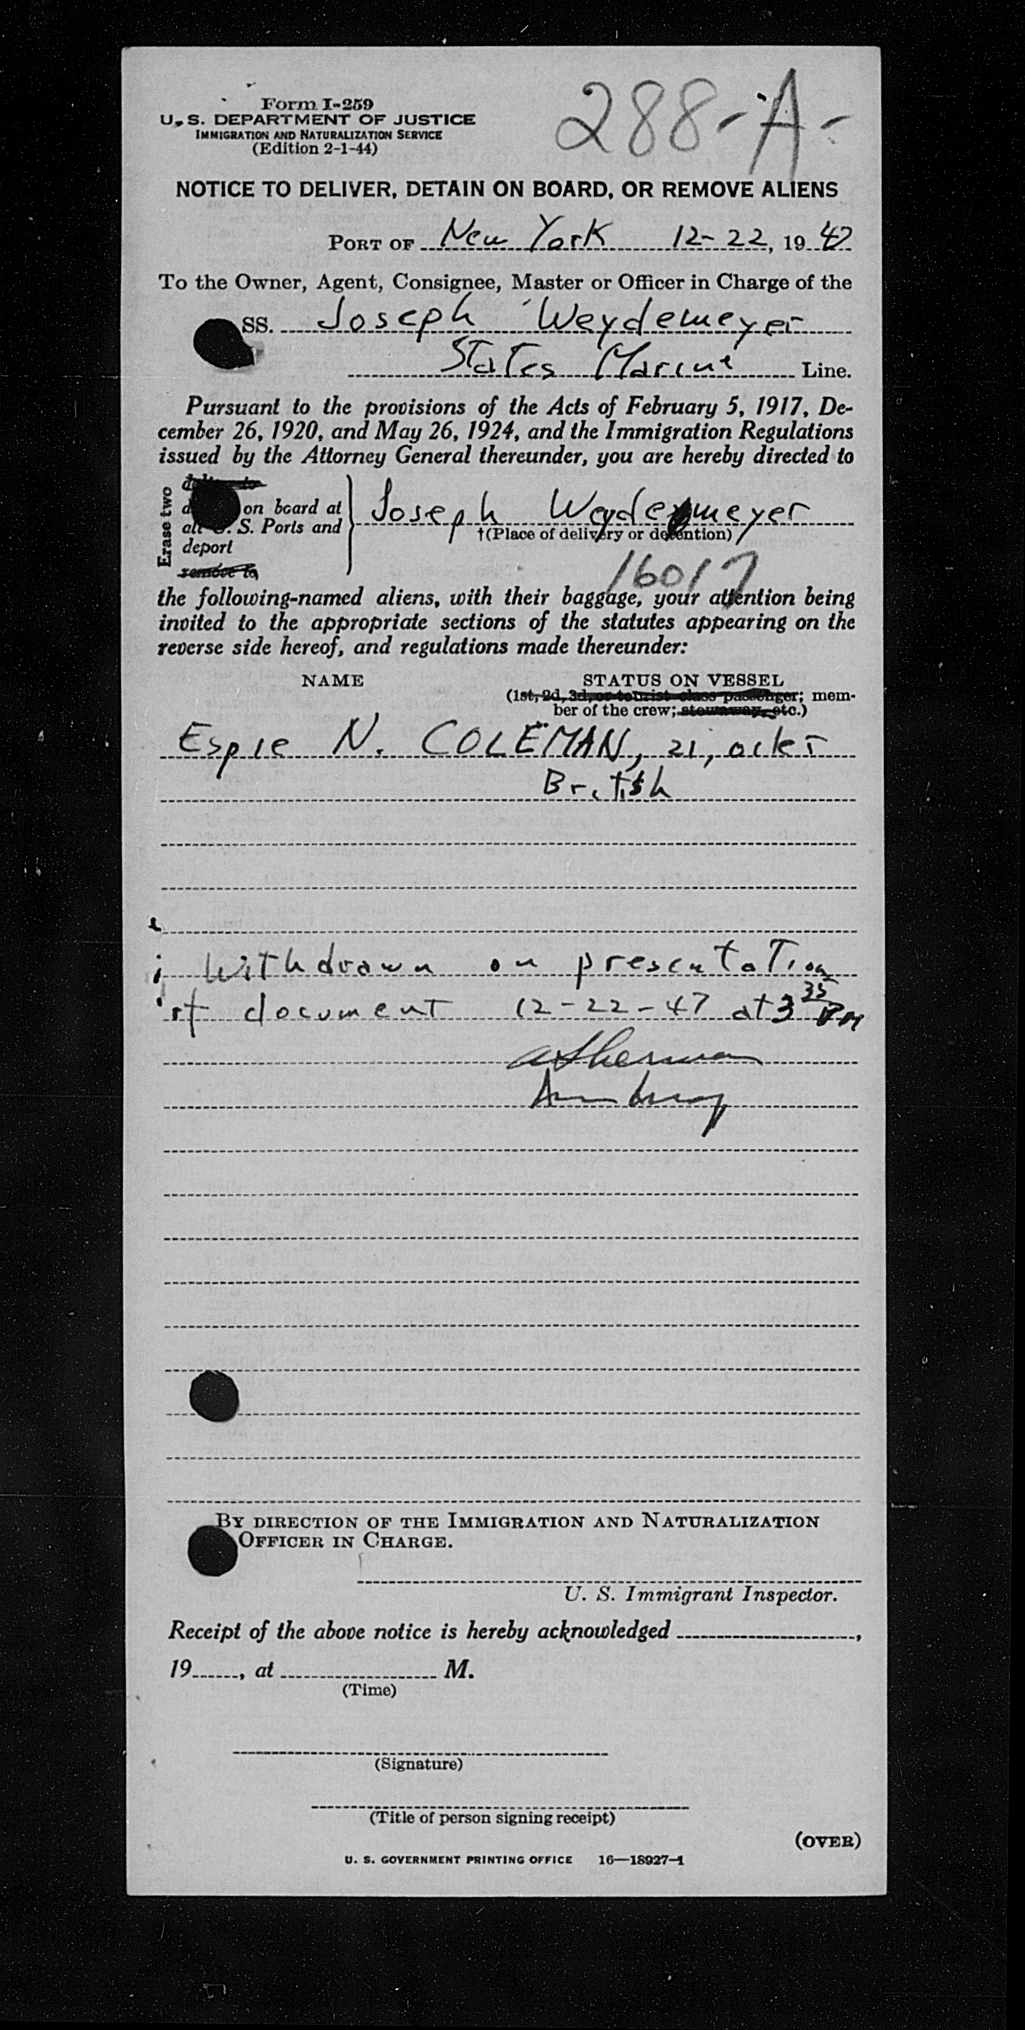 Form I-259
U. S. DEPARTMENT OF JUSTICE
IMMIGRATION AND NATURALIZATION SERVICE
(Edition 2-1-44)
288-A-
NOTICE TO DELIVER, DETAIN ON BOARD, OR REMOVE ALIENS
PORT OF New York 12-22, 19 47
To the Owner, Agent, Consignee, Master or Officer in Charge of the
SS. Joseph Weydemeyer
States Marine Line.
Pursuant to the provisions of the Acts of February 5, 1917, De-
cember 26, 1920, and May 26, 1924, and the Immigration Regulations
issued by the Attorney General thereunder, you are hereby directed to
Erase two
on board at
all U. S. Ports and
deport
remove to
Joseph Weydemeyer
†(Place of delivery or detention)
16017
the following-named aliens, with their baggage, your attention being
invited to the appropriate sections of the statutes appearing on the
reverse side hereof, and regulations made thereunder:
NAME STATUS ON VESSEL
(1st, 2d, 3d, or tourist class passenger; mem-
ber of the crew; stowaway, etc.)
Espie N. COLEMAN, 21, oiler
British
Withdrawn on presentation
of document 12-22-47 at 3 35 PM
By direction of the Immigration and Naturalization
Officer in Charge.
U. S. Immigrant Inspector.
Receipt of the above notice is hereby acknowledged ,
19 , at M.
(Time)
(Signature)
(Title of person signing receipt)
(OVER)
U. S. GOVERNMENT PRINTING OFFICE 16—18927-1